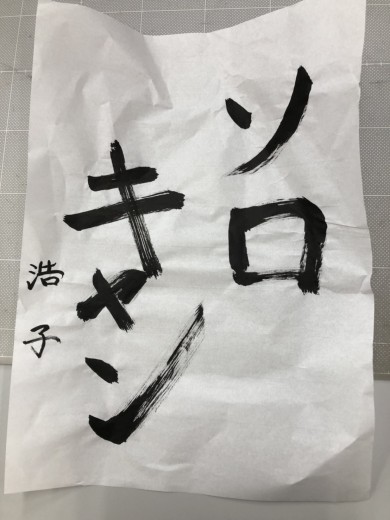 ソロ
キャン
浩子